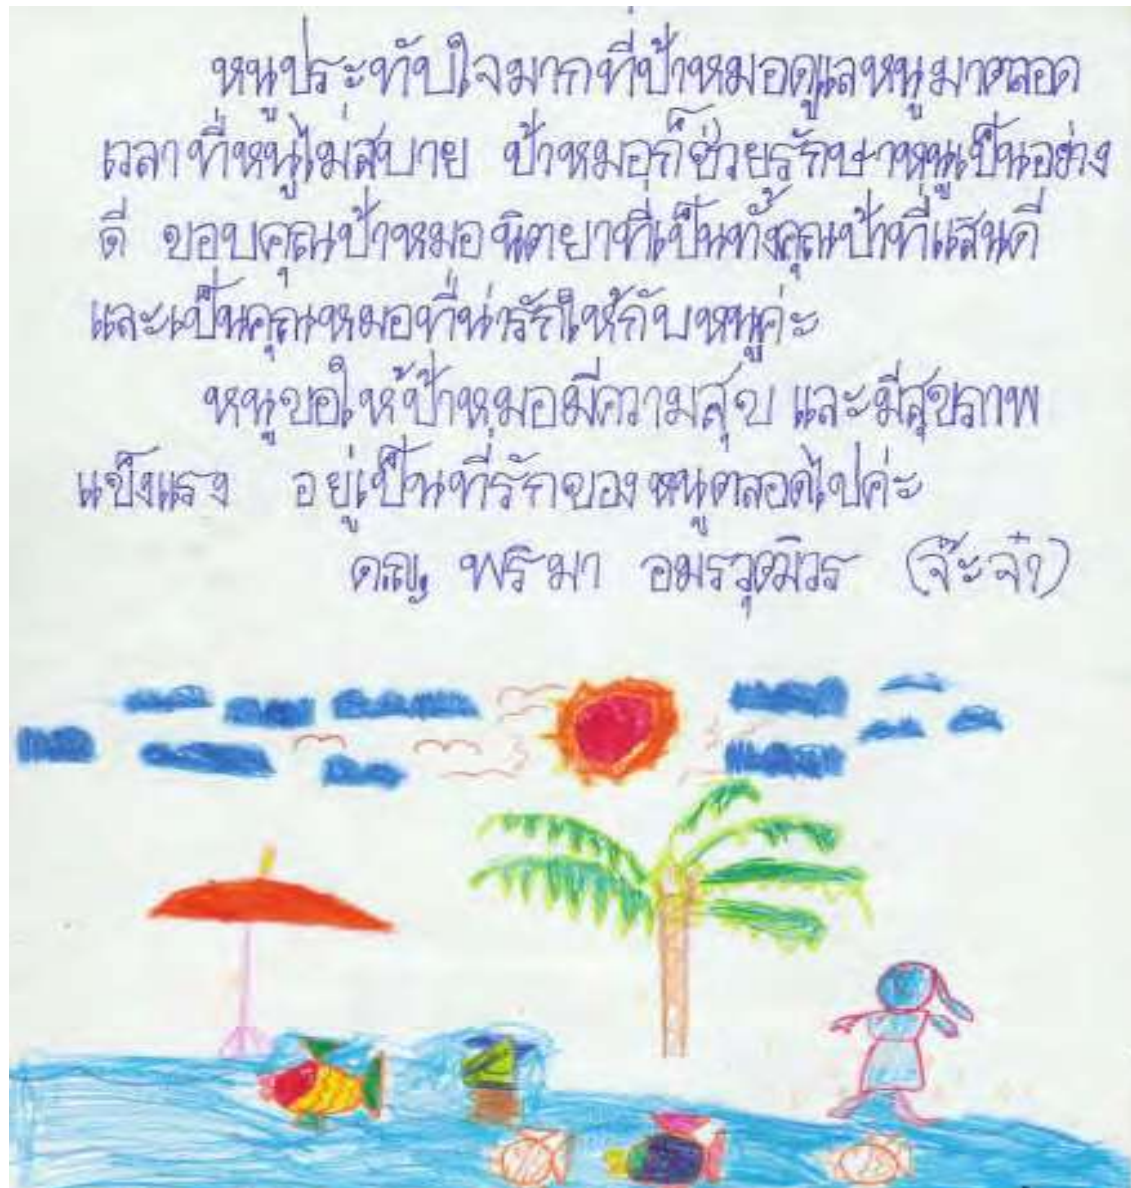 หนูประทับใจมากที่ป้าหมอดูแลหนูมาตลอด
เวลาที่หนูไม่สบาย ป้าหมอก็ช่วยรักษาหนูเป็นอย่าง
ดี ขอบคุณป้าหมอนิตยาที่เป็นทั้งคุณป้าที่แสนดี
และเป็นคุณหมอที่น่ารักให้กับหนูค่ะ
หนูขอให้ป้าหมอมีความสุข และมีสุขภาพ
แข็งแรง อยู่เป็นที่รักของหนูตลอดไปค่ะ
ดญ. พริมา อมรวุฒิวร (จ๊ะจ๋า)